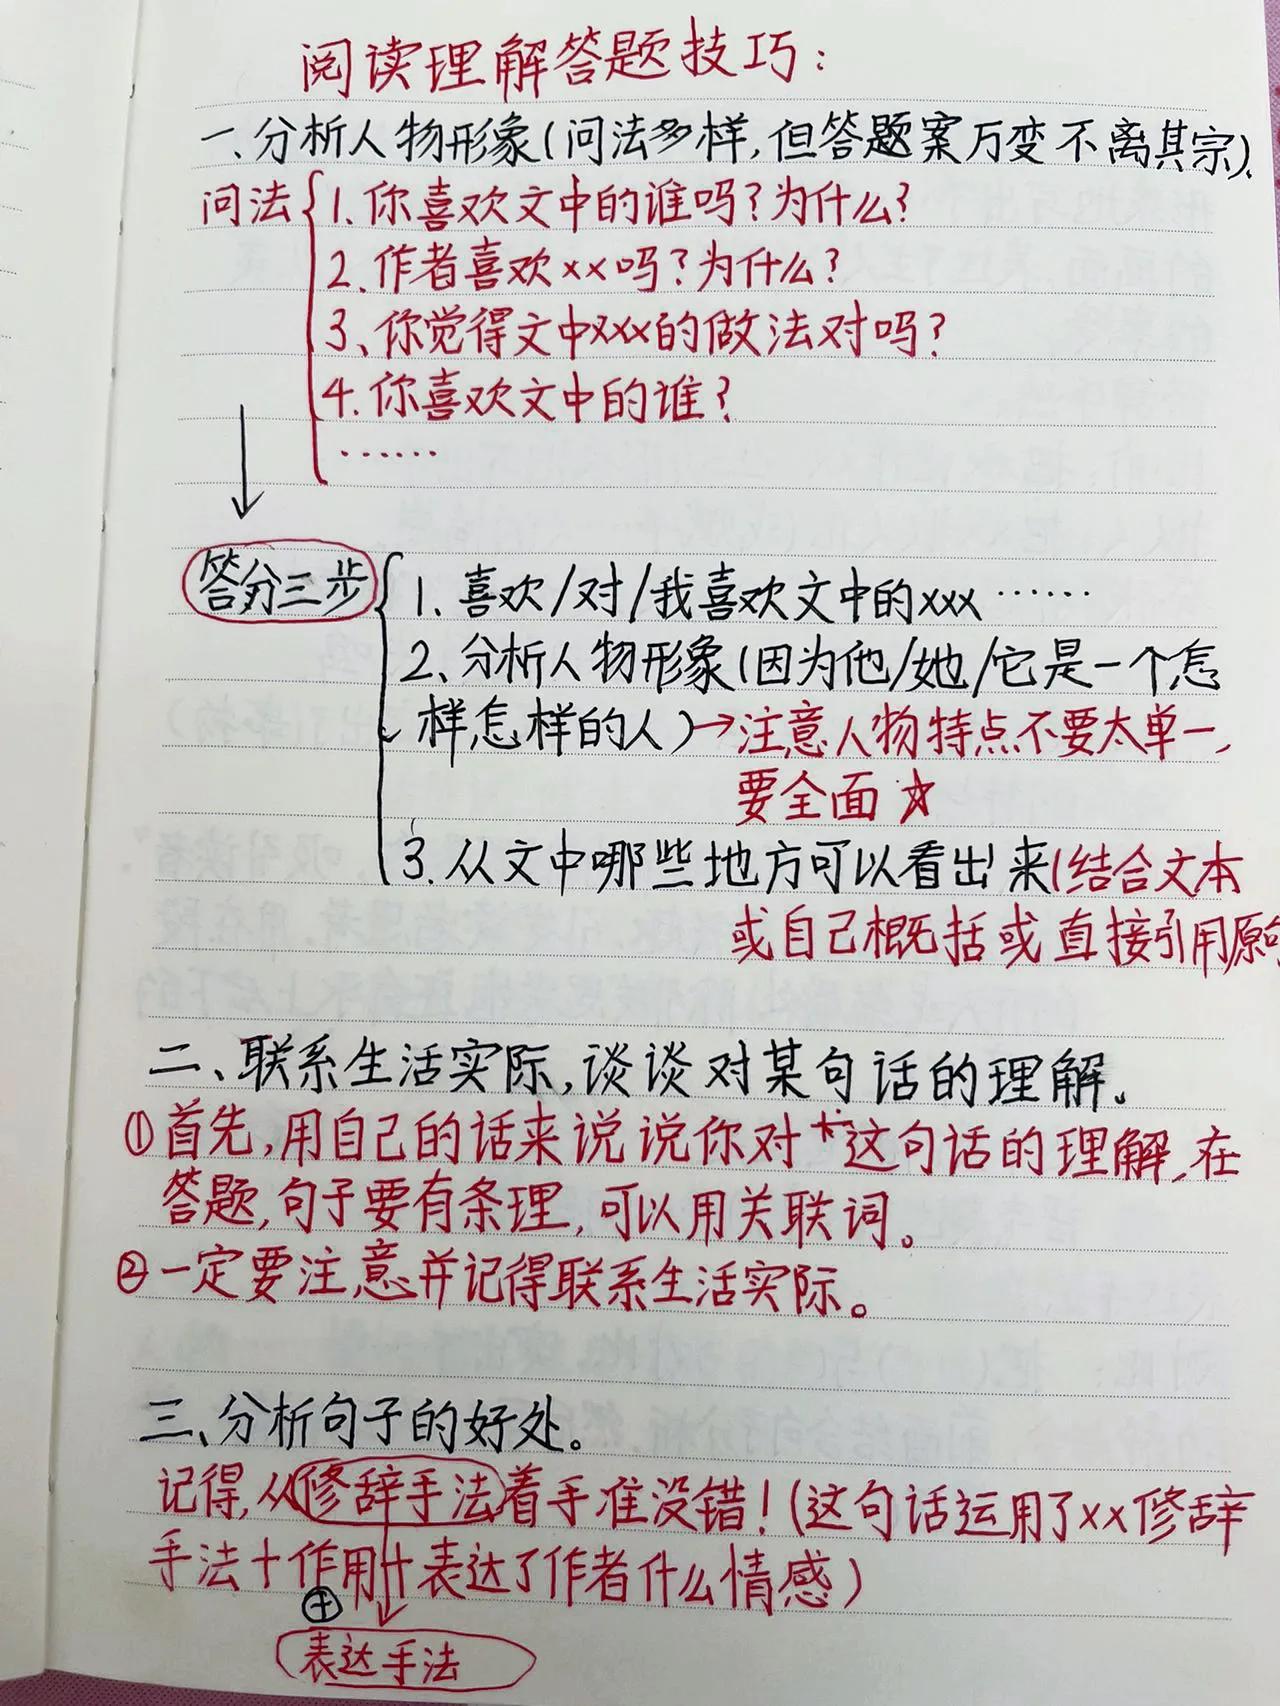 阅读理解答题技巧：
一、分析人物形象(问法多样,但答题案万变不离其宗).
问法 1.你喜欢文中的谁吗?为什么?
2.作者喜欢xx吗?为什么?
3、你觉得文中xxx的做法对吗?
4.你喜欢文中的谁?
……
答分三步 1.喜欢/对/我喜欢文中的xxx……
2、分析人物形象(因为他/她/它是一个怎
样怎样的人)→注意人物特点不要太单一,
要全面☆
3.从文中哪些地方可以看出来(结合文本
或自己概括或直接引用原句
二、联系生活实际,谈谈对某句话的理解。
①首先,用自己的话来说说你对*这句话的理解,在
答题,句子要有条理,可以用关联词。
②一定要注意并记得联系生活实际。
三、分析句子的好处。
记得,从修辞手法着手准没错!(这句话运用了xx修辞
手法+作用+表达了作者什么情感)
+
表达手法